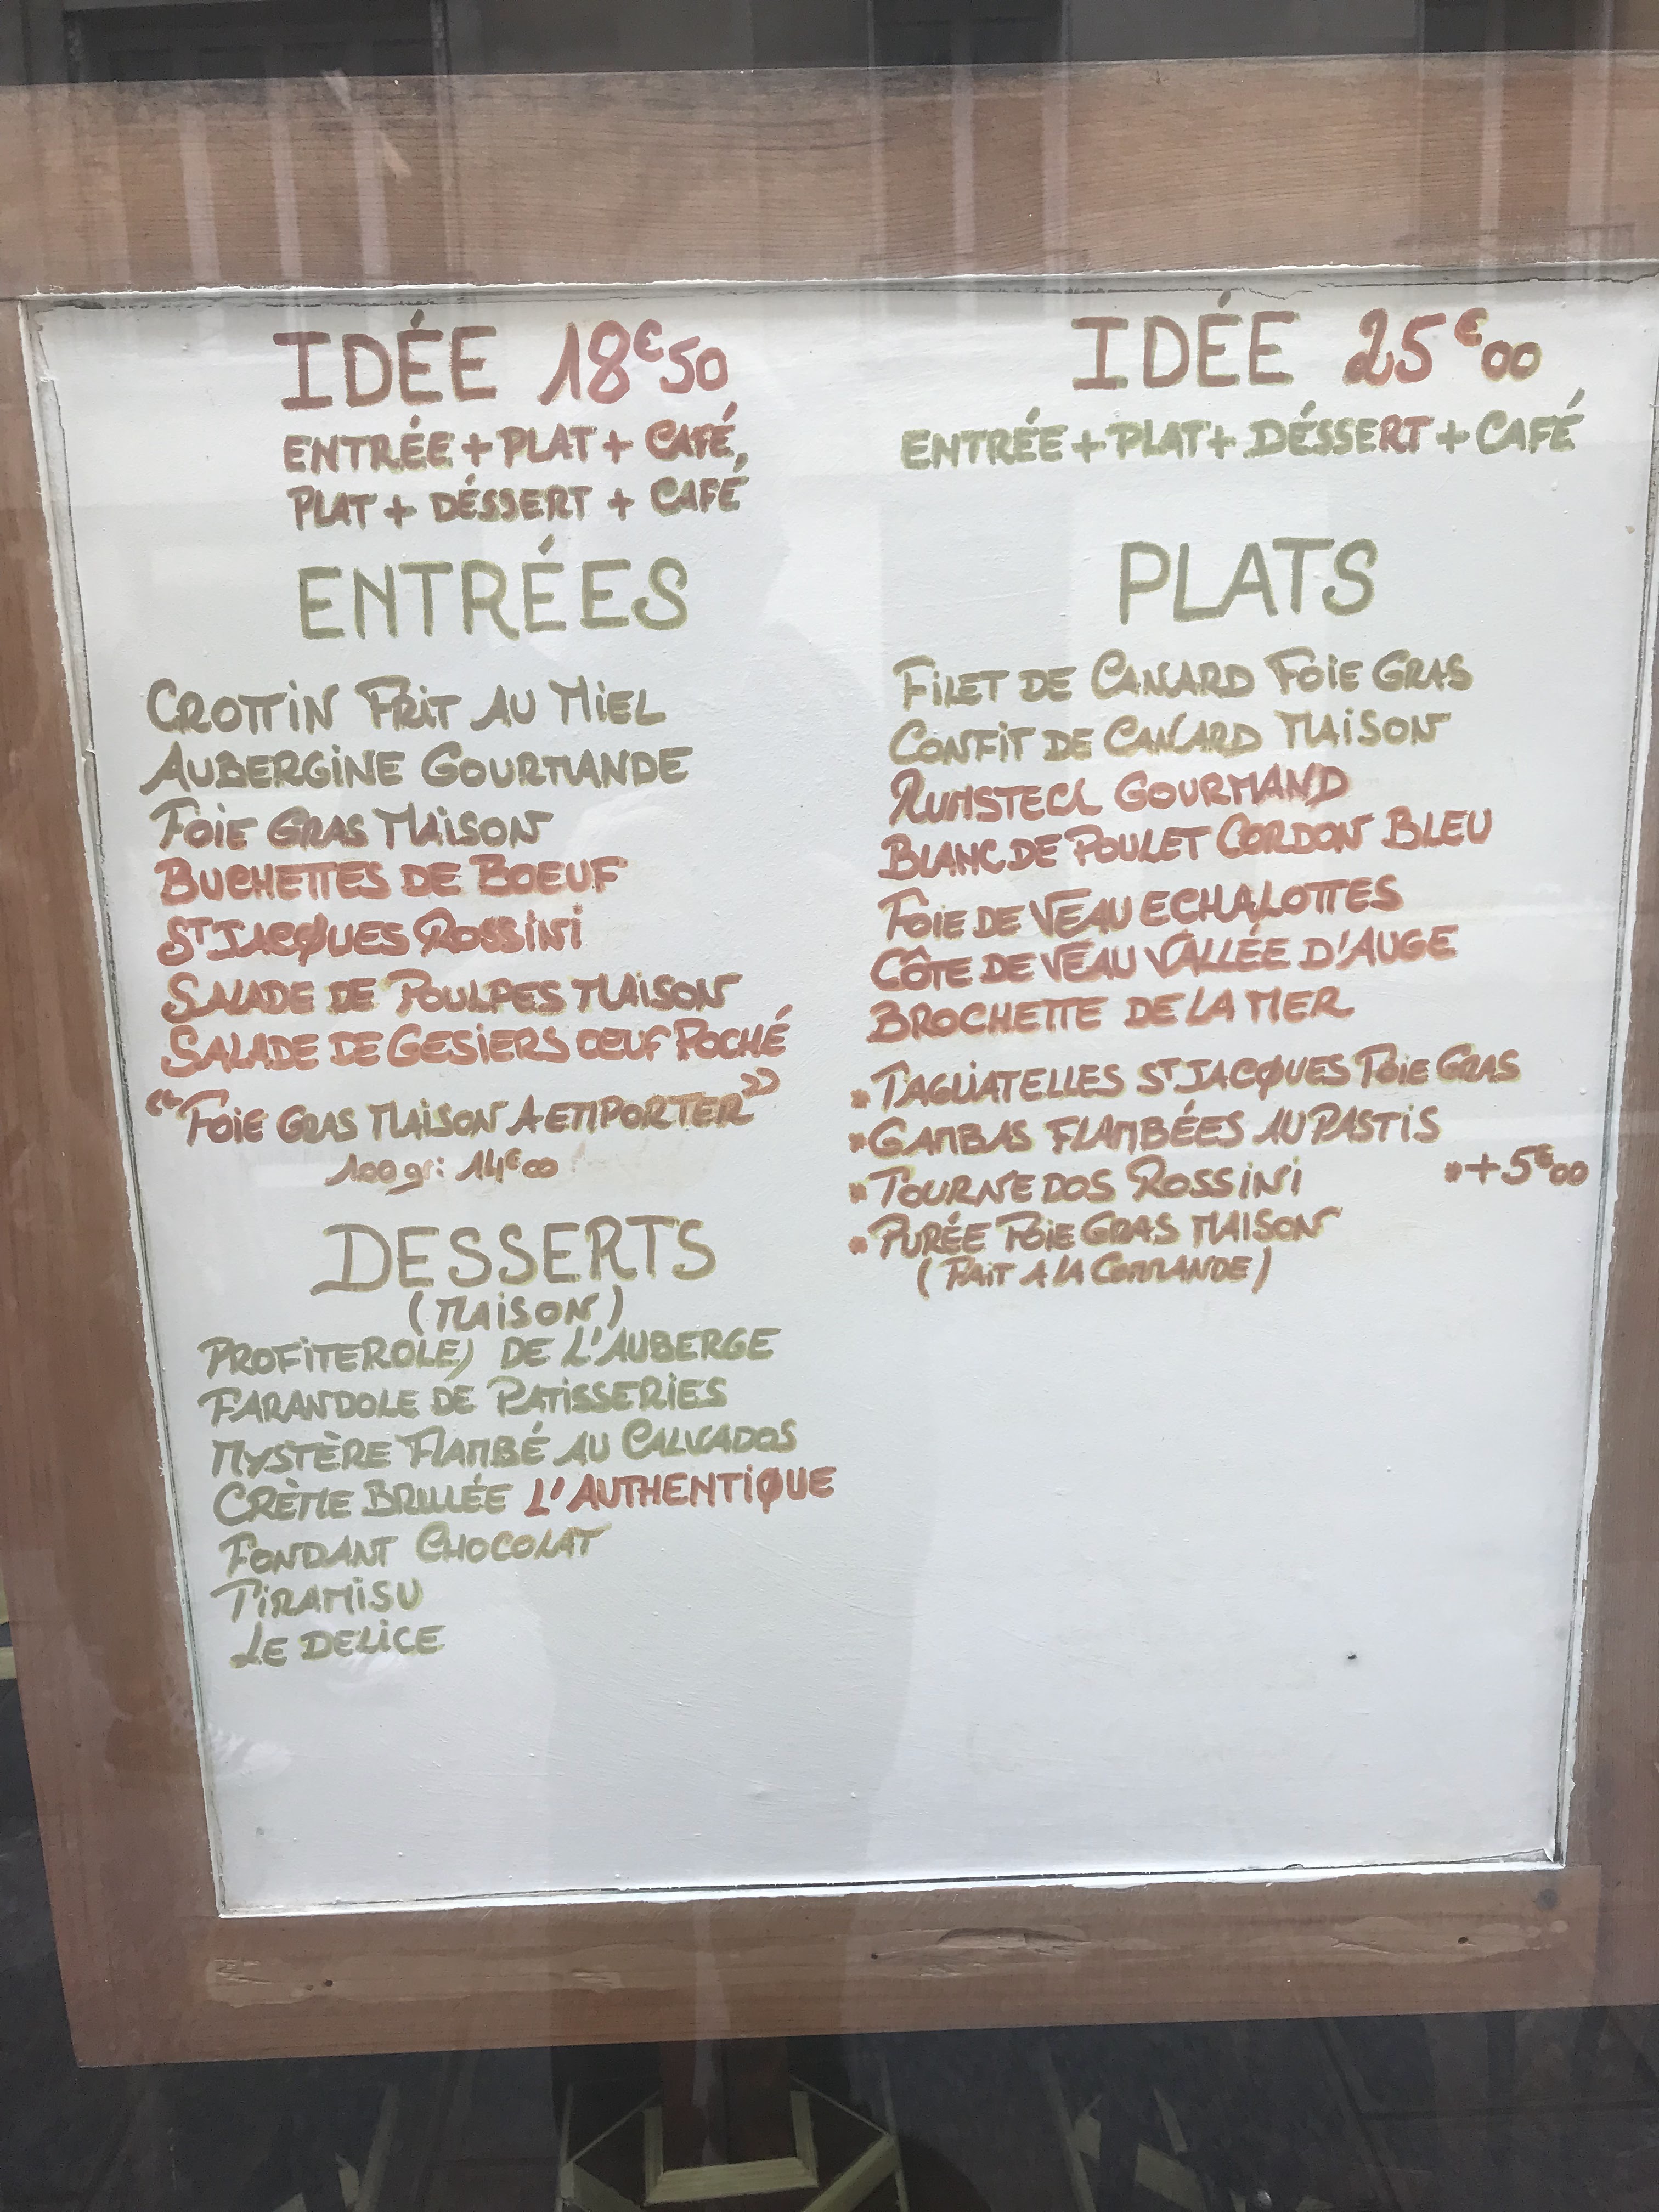 IDÉE 18€50
ENTRÉE + PLAT + CAFÉ,
PLAT + DÉSSERT + CAFÉ
ENTRÉES
CROTTIN FRIT AU MIEL
AUBERGINE GOURMANDE
FOIE GRAS MAISON
BUCHETTES DE BOEUF
ST JACQUES ROSSINI
SALADE DE POULPES MAISON
SALADE DE GESIERS OEUF POCHÉ
"FOIE GRAS MAISON A EMPORTER"
100 gr: 14€00
DESSERTS
(MAISON)
PROFITEROLES DE L'AUBERGE
FARANDOLE DE PATISSERIES
MYSTÈRE FLAMBÉ AU CALVADOS
CRÈME BRULÉE L'AUTHENTIQUE
FONDANT CHOCOLAT
TIRAMISU
LE DELICE
IDÉE 25€00
ENTRÉE + PLAT + DÉSSERT + CAFÉ
PLATS
FILET DE CANARD FOIE GRAS
CONFIT DE CANARD MAISON
RUMSTECK GOURMAND
BLANC DE POULET CORDON BLEU
FOIE DE VEAU ECHALOTTES
CÔTE DE VEAU VALLÉE D'AUGE
BROCHETTE DE LA MER
* TAGLIATELLES ST JACQUES FOIE GRAS
* GAMBAS FLAMBÉES AU PASTIS
* TOURNEDOS ROSSINI * + 5€00
* PURÉE FOIE GRAS MAISON
(FAIT A LA COMMANDE)